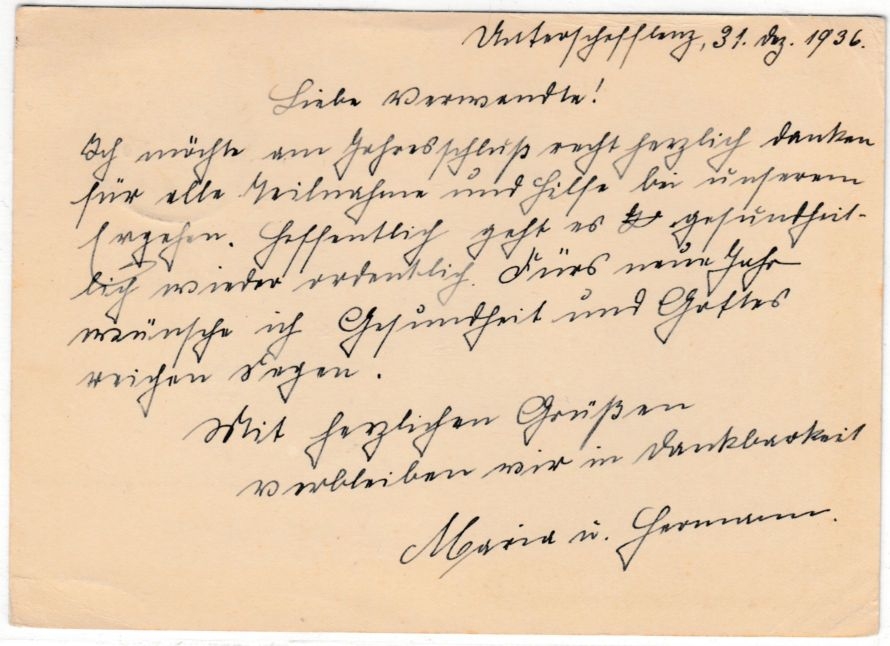 Unterschefflenz, 31. Dez. 1936.
Liebe Verwandte!
Ich möchte am Jahresschluß recht herzlich danken
für alle Teilnahme und Hilfe bei unserem
Ergehen. Hoffentlich geht es gesundheit-
lich wieder ordentlich. Fürs neue Jahr
wünsche ich Gesundheit und Gottes
reichen Segen.
Mit herzlichen Grüßen
verbleiben wir in Dankbarkeit
Maria u. Hermann.